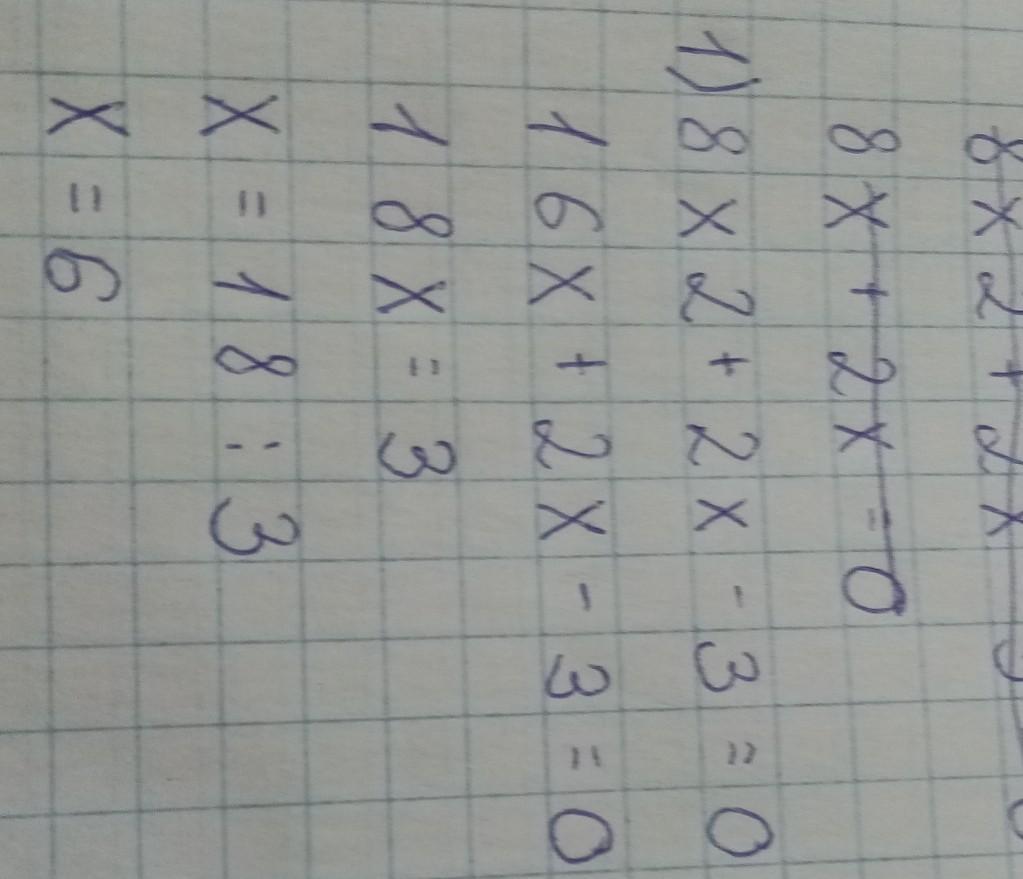 8x2+2x
8x+2x=0
1) 8x2+2x-3=0
16x+2x-3=0
18x=3
x=18:3
x=6